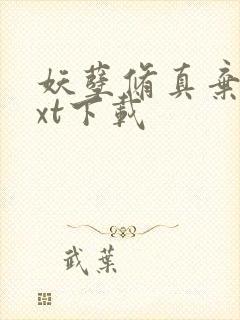 妖孽脩真棄
xt下載
武葉